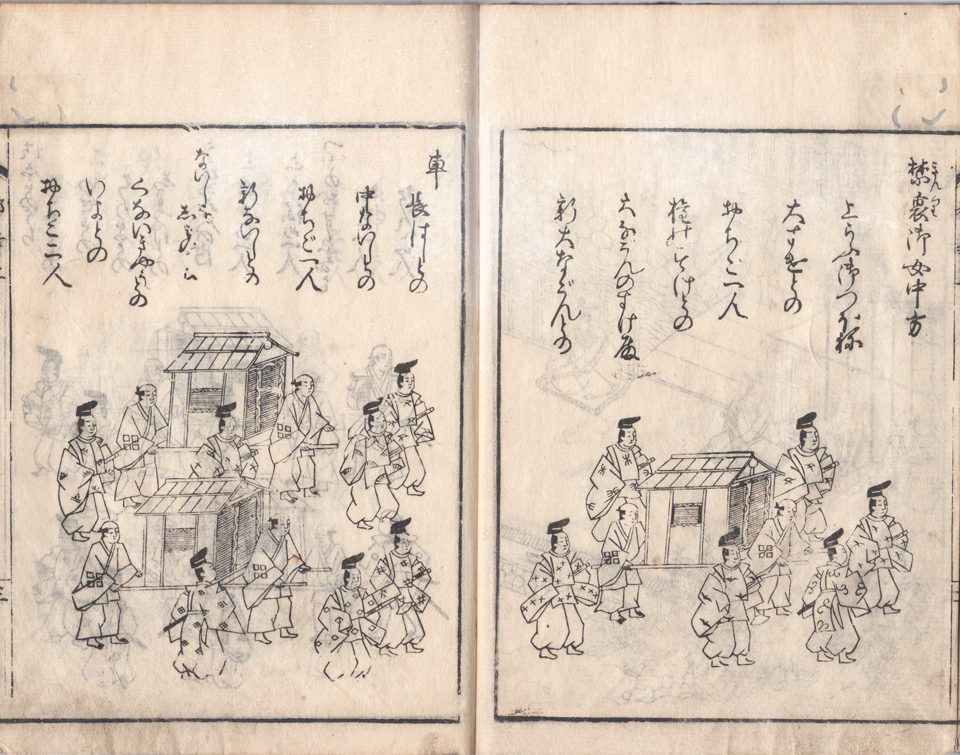 禁裏御女中方
きんり
上らふ御つぼね
大すけとの
おちご二人
権のすけとの
大なごんのすけ殿
新大なごんとの
車
長はしとの
中ないしとの
おちご二人
新ないしとの
ないし
くないきやうとの
いよとの
おちご二人